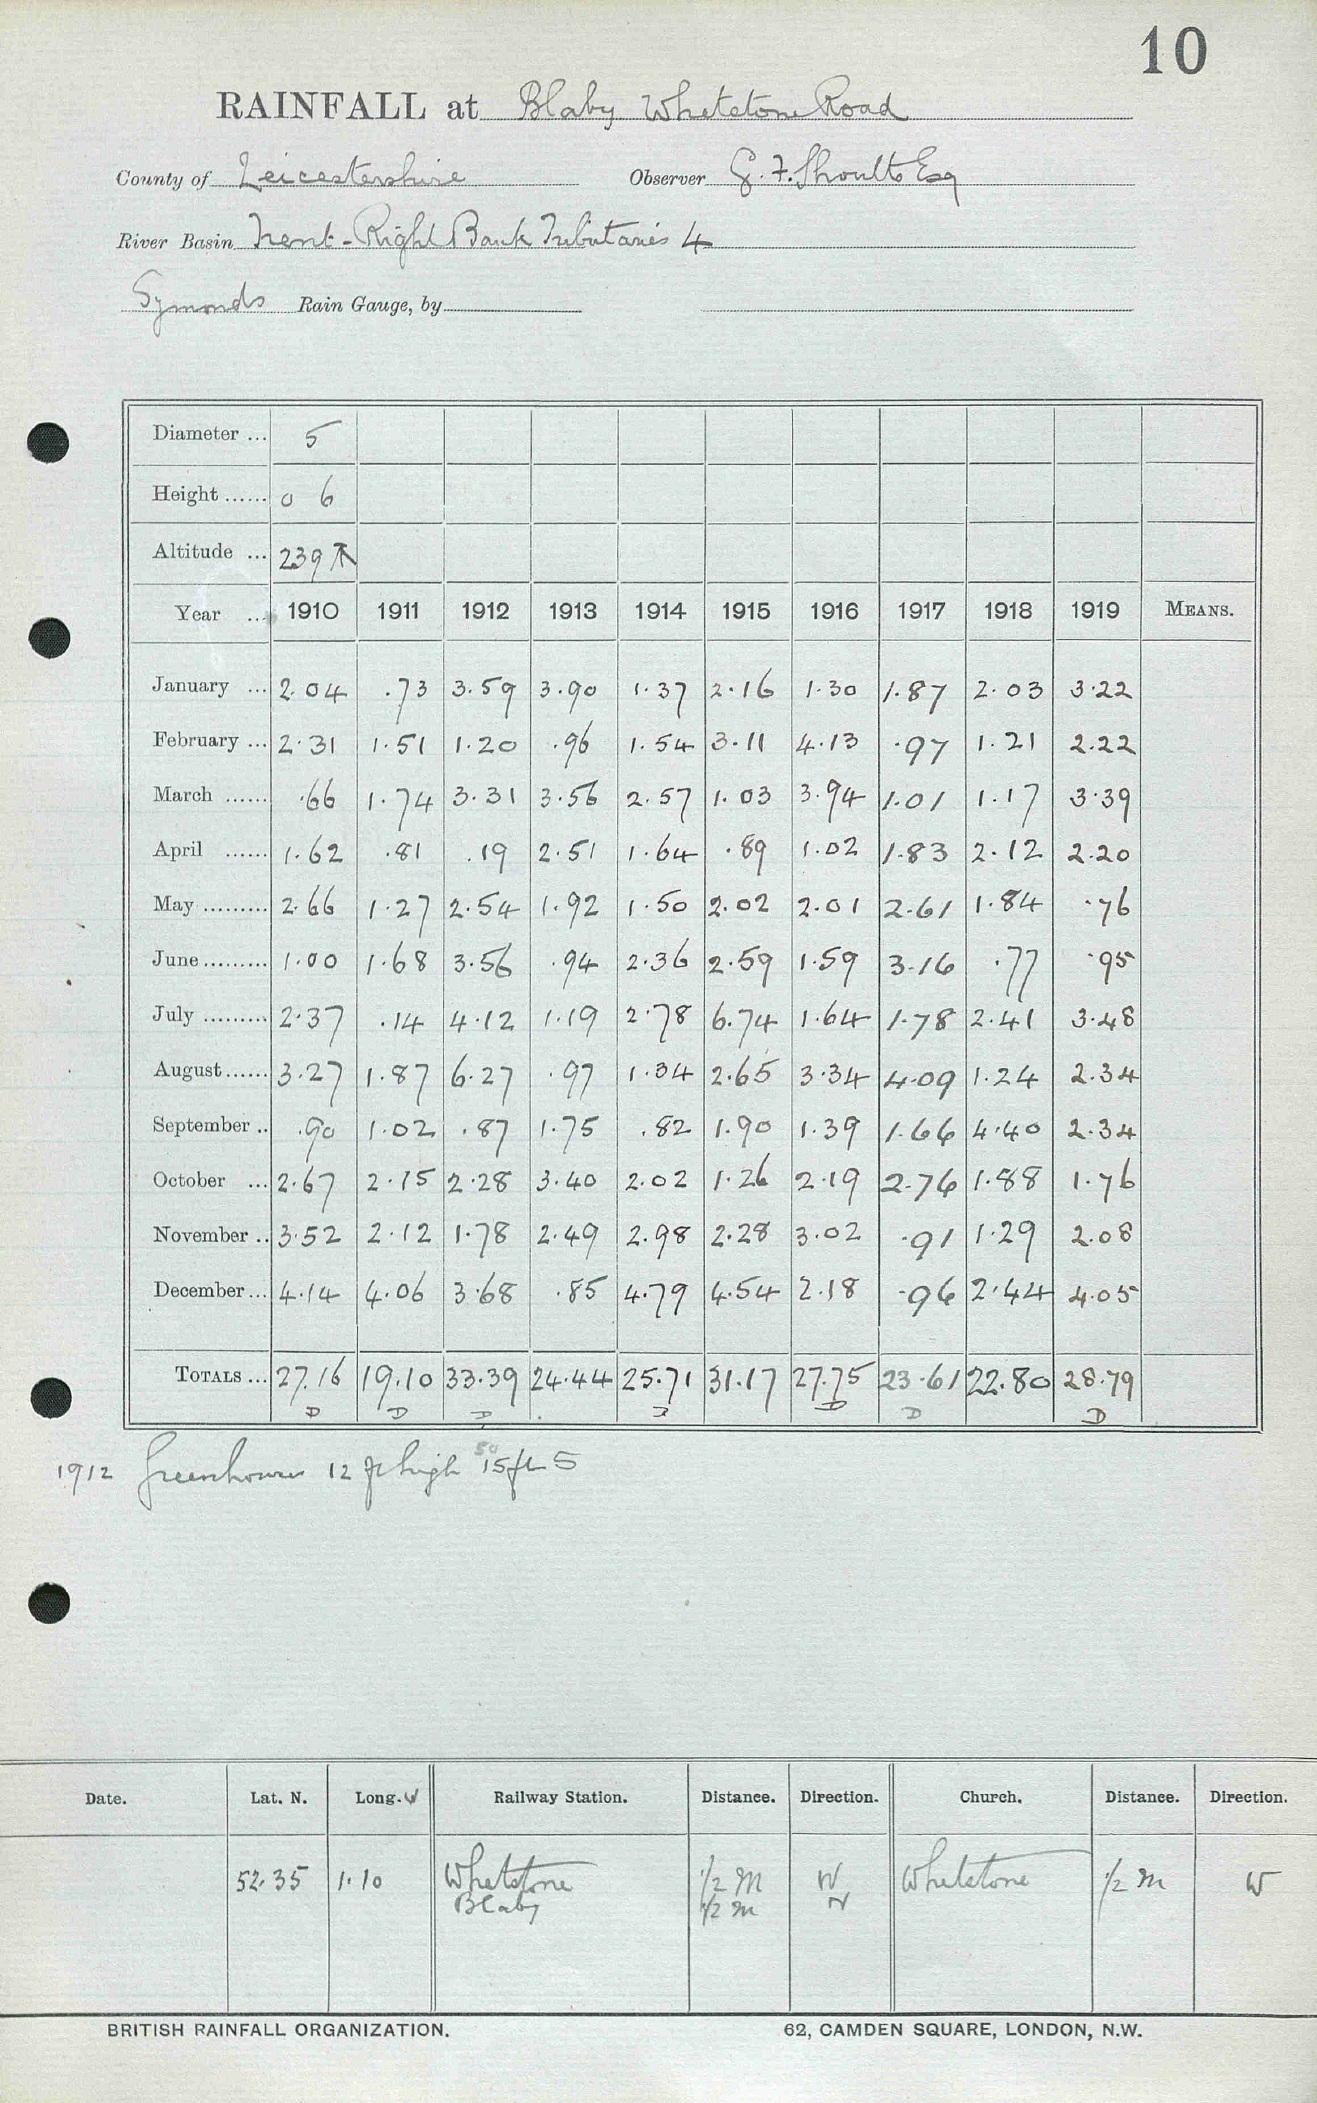 10
RAINFALL at Blaby Whetstone Road
County of Leicestershire Observer G. F. Shoults Esq
River Basin Trent - Right Bank Tributaries 4
Symonds Rain Gauge, by
Diameter ... 5
Height ...... 0 6
Altitude ... 239
Year ... 1910 1911 1912 1913 1914 1915 1916 1917 1918 1919 MEANS.
January ... 2.04 .73 3.59 3.90 1.37 2.16 1.30 1.87 2.03 3.22
February ... 2.31 1.51 1.20 .96 1.54 3.11 4.13 .97 1.21 2.22
March ...... .66 1.74 3.31 3.56 2.57 1.03 3.94 1.01 1.17 3.39
April ...... 1.62 .81 .19 2.51 1.64 .89 1.02 1.83 2.12 2.20
May ......... 2.66 1.27 2.54 1.92 1.50 2.02 2.01 2.61 1.84 .76
June ......... 1.00 1.68 3.56 .94 2.36 2.59 1.59 3.16 .77 .95
July ......... 2.37 .14 4.12 1.19 2.78 6.74 1.64 1.78 2.41 3.48
August ...... 3.27 1.87 6.27 .97 1.34 2.65 3.34 4.09 1.24 2.34
September .. .90 1.02 .87 1.75 .82 1.90 1.39 1.66 4.40 2.34
October ... 2.67 2.15 2.28 3.40 2.02 1.26 2.19 2.76 1.88 1.76
November .. 3.52 2.12 1.78 2.49 2.98 2.28 3.02 .91 1.29 2.08
December ... 4.14 4.06 3.68 .85 4.79 4.54 2.18 .96 2.44 4.05
TOTALS ... 27.16 19.10 33.39 24.44 25.71 31.17 27.75 23.61 22.80 28.79
D D D D D D D
1912 Greenhouse 12 ft high 15 ft S
Date. Lat. N. Long. W Railway Station. Distance. Direction. Church. Distance. Direction.
52.35 1.10 Whetstone 1/2 M W Whetstone 1/2 M W
Blaby 1/2 M N
BRITISH RAINFALL ORGANIZATION. 62, CAMDEN SQUARE, LONDON, N.W.